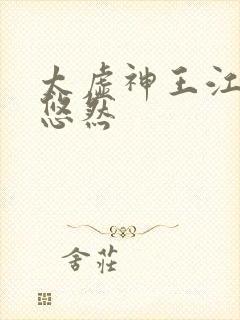 太虚神王江
悠然
舍莊